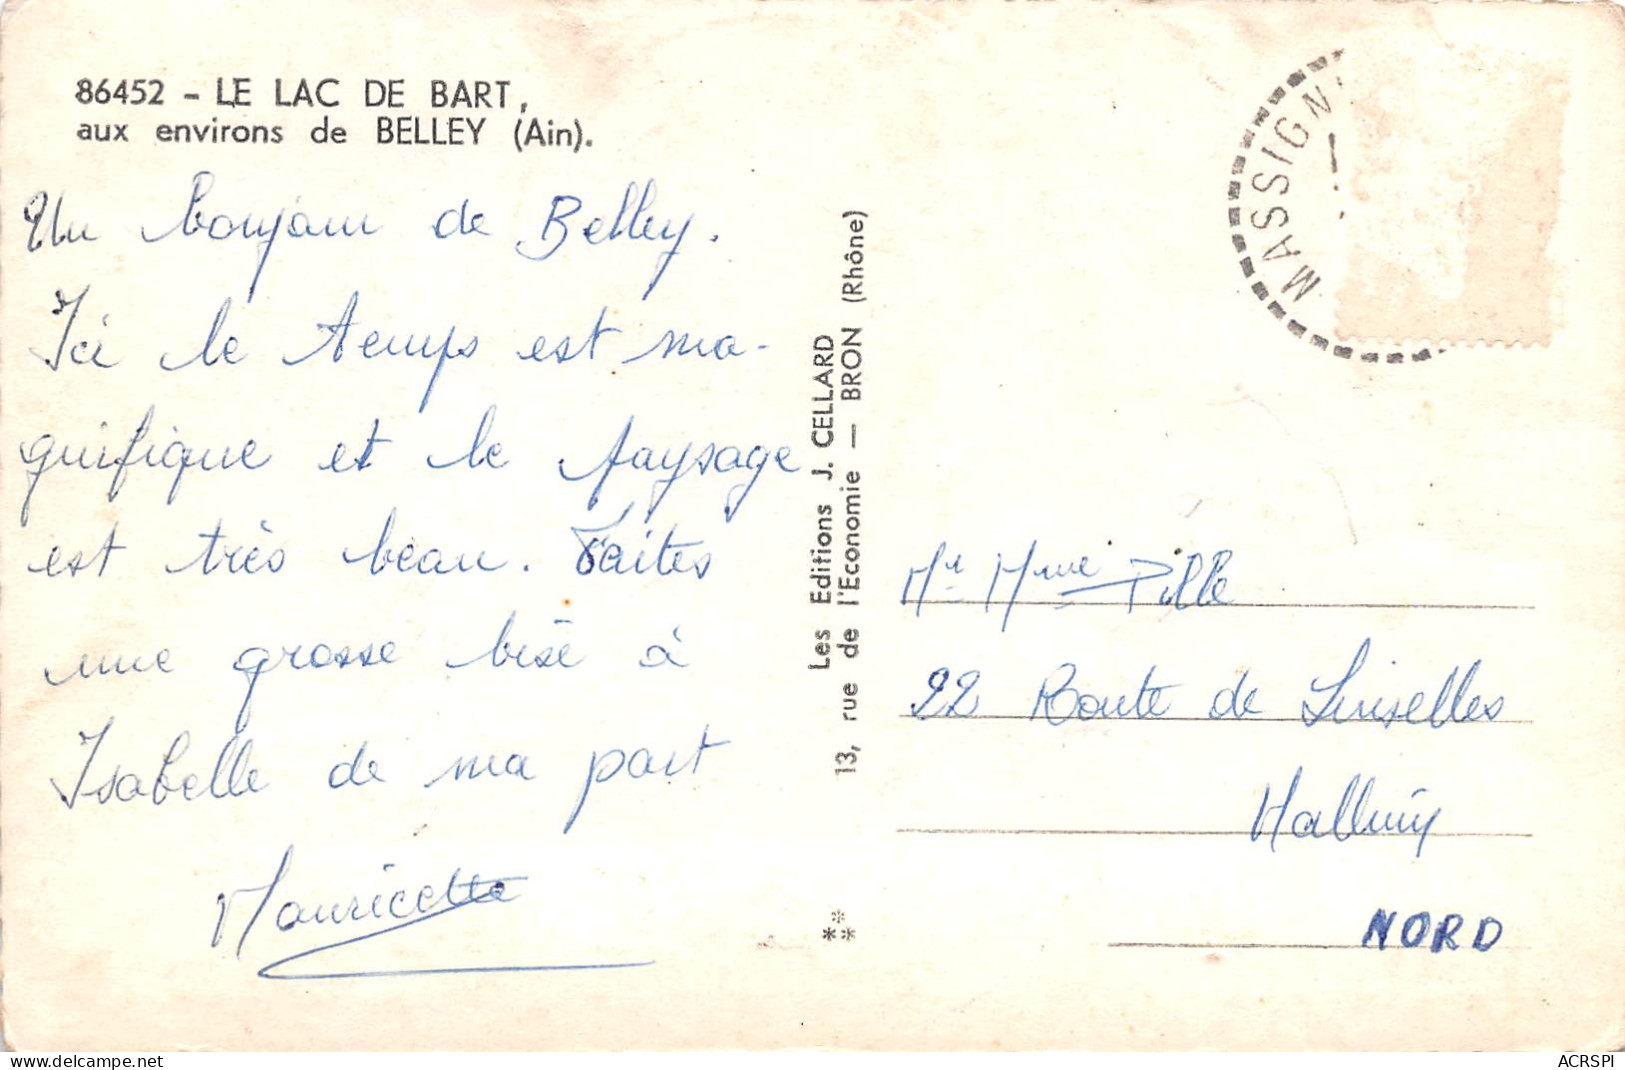 86452 - LE LAC DE BART,
aux environs de BELLEY (Ain).
Un bonjour de Belley.
Ici le temps est ma-
gnifique et le paysage
est très beau. Faites
une grosse bise à
Isabelle de ma part
Mauricette
Les Editions J. CELLARD
13, rue de l'Economie — BRON (Rhône)
MASSIGN
Mr Mme Pille
22 Route de Linselles
Halluin
NORD
delcampe.net
ACRSPI